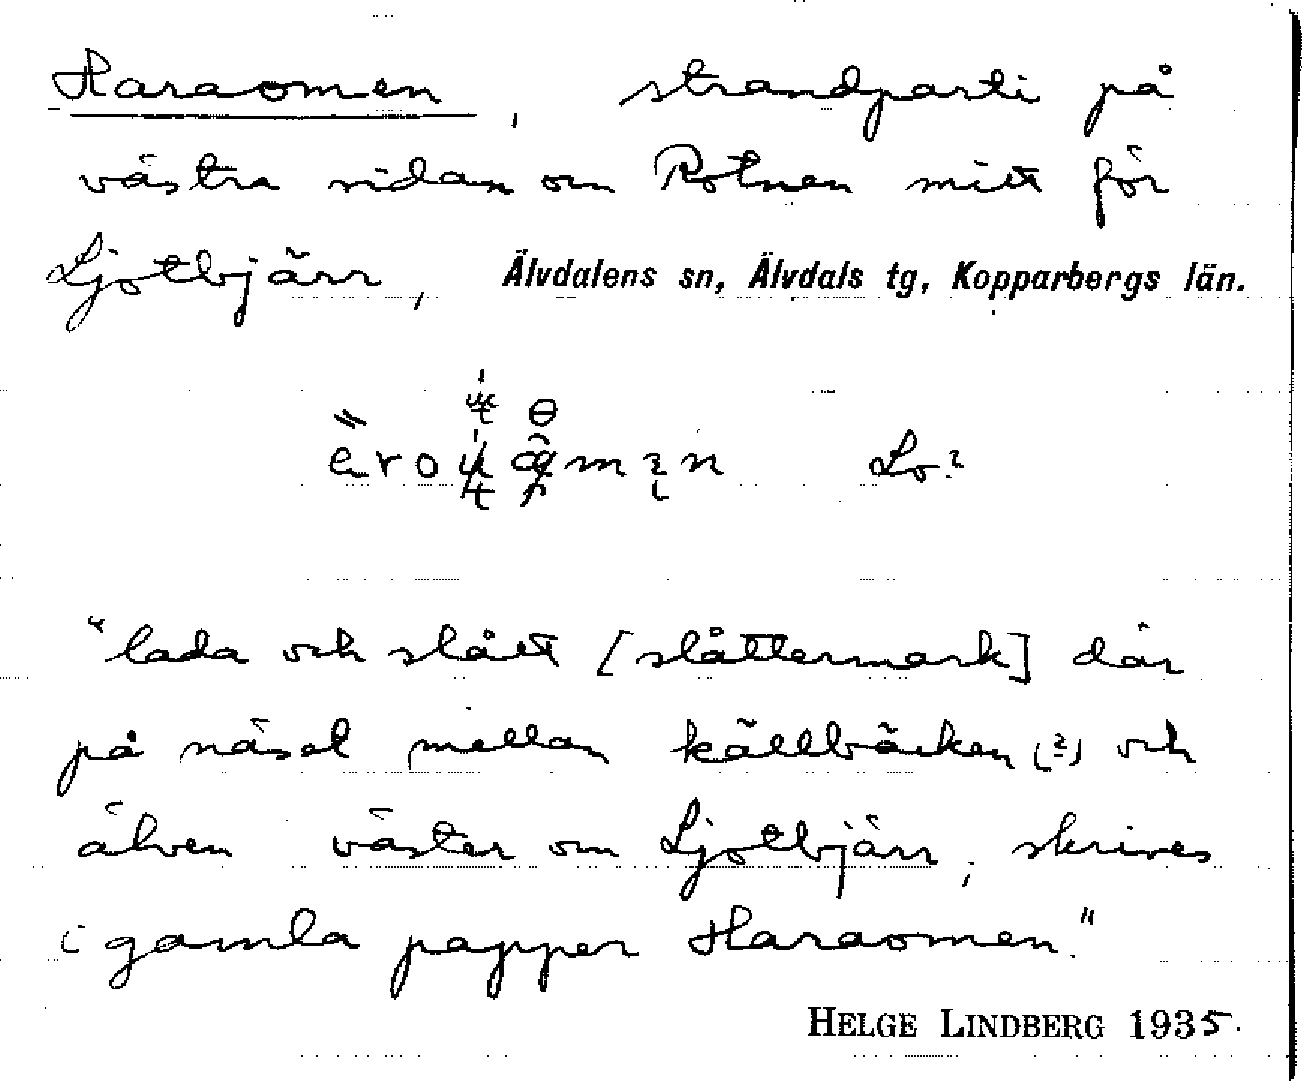 Haraomen, strandparti på
västra sidan om Rotnen mitt för
Ljotbjärr, Älvdalens sn, Älvdals tg, Kopparbergs län.
Lo.
"lada och slått [slåttermark] där
på näset mellan källbäcken (?) och
älven väster om Ljotbjärr, skrives
i gamla papper Haraomen."
HELGE LINDBERG 1935.